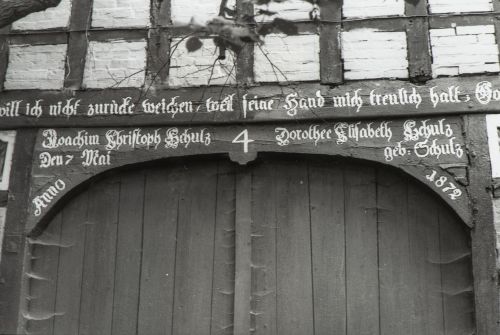 will ich nicht zurücke weichen, weil seine Hand mich treulich hält, Go
Joachim Christoph Schulz 4 Dorothee Elisabeth Schulz
Den 7 Mai geb: Schulz
Anno 1872